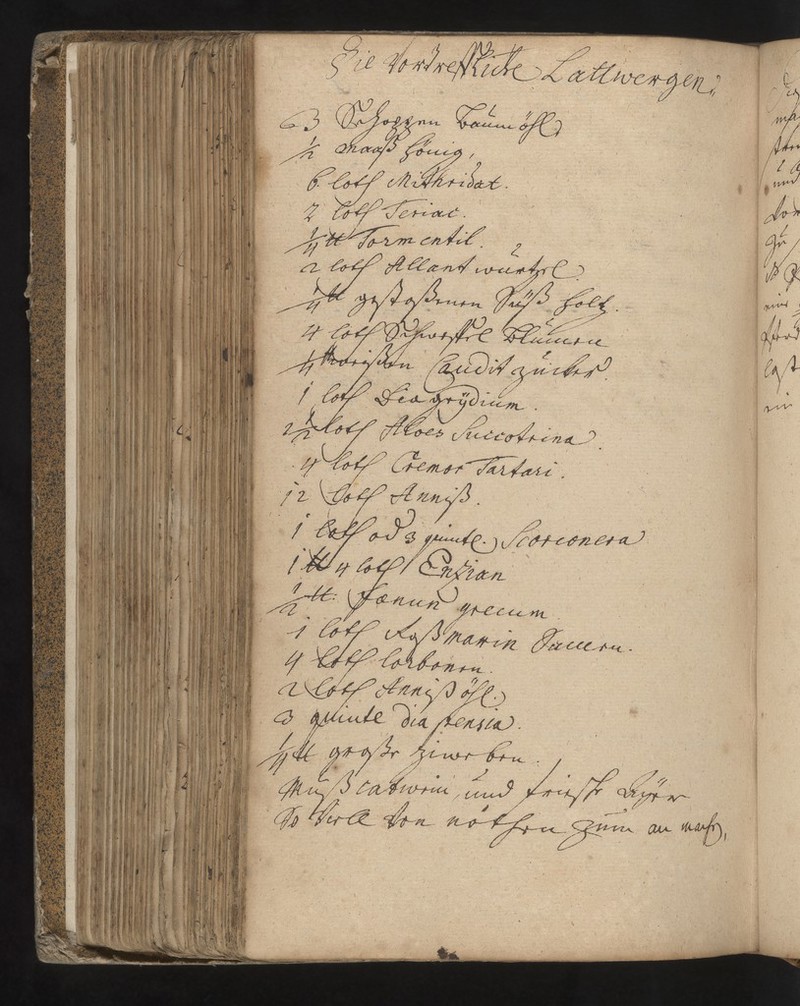 Die Vortreffliche Lattwergen:
3 Schoppen Baumöhl,
1/2 Maaß Hönig,
6 loth Mithridat.
2 loth Teriac.
1/4 ℔ Tormentil.
2 loth Allant würtzel
1/4 ℔ gestoßenen Süß holtz.
4 loth Schweffel Blumen
1/4 ℔ weißen Candit zucker.
1 loth Diagrÿdium.
2 1/2 loth Aloes Succotrina.
4 loth Cremor Tartari.
12 loth Anniß.
1 loth od 3 quintl. Scorconera
1 ℔ 4 loth Enzian
1/2 ℔. fænun grecum
1 loth Roßmarin
4 loth lorbonen.
2 loth Anniß öhl.
3 quintl dia pensia.
1/4 ℔ große Ziweben.
Mußcatwein, und frische Ayer
So Viell Von nöthen zum an mach,
ein